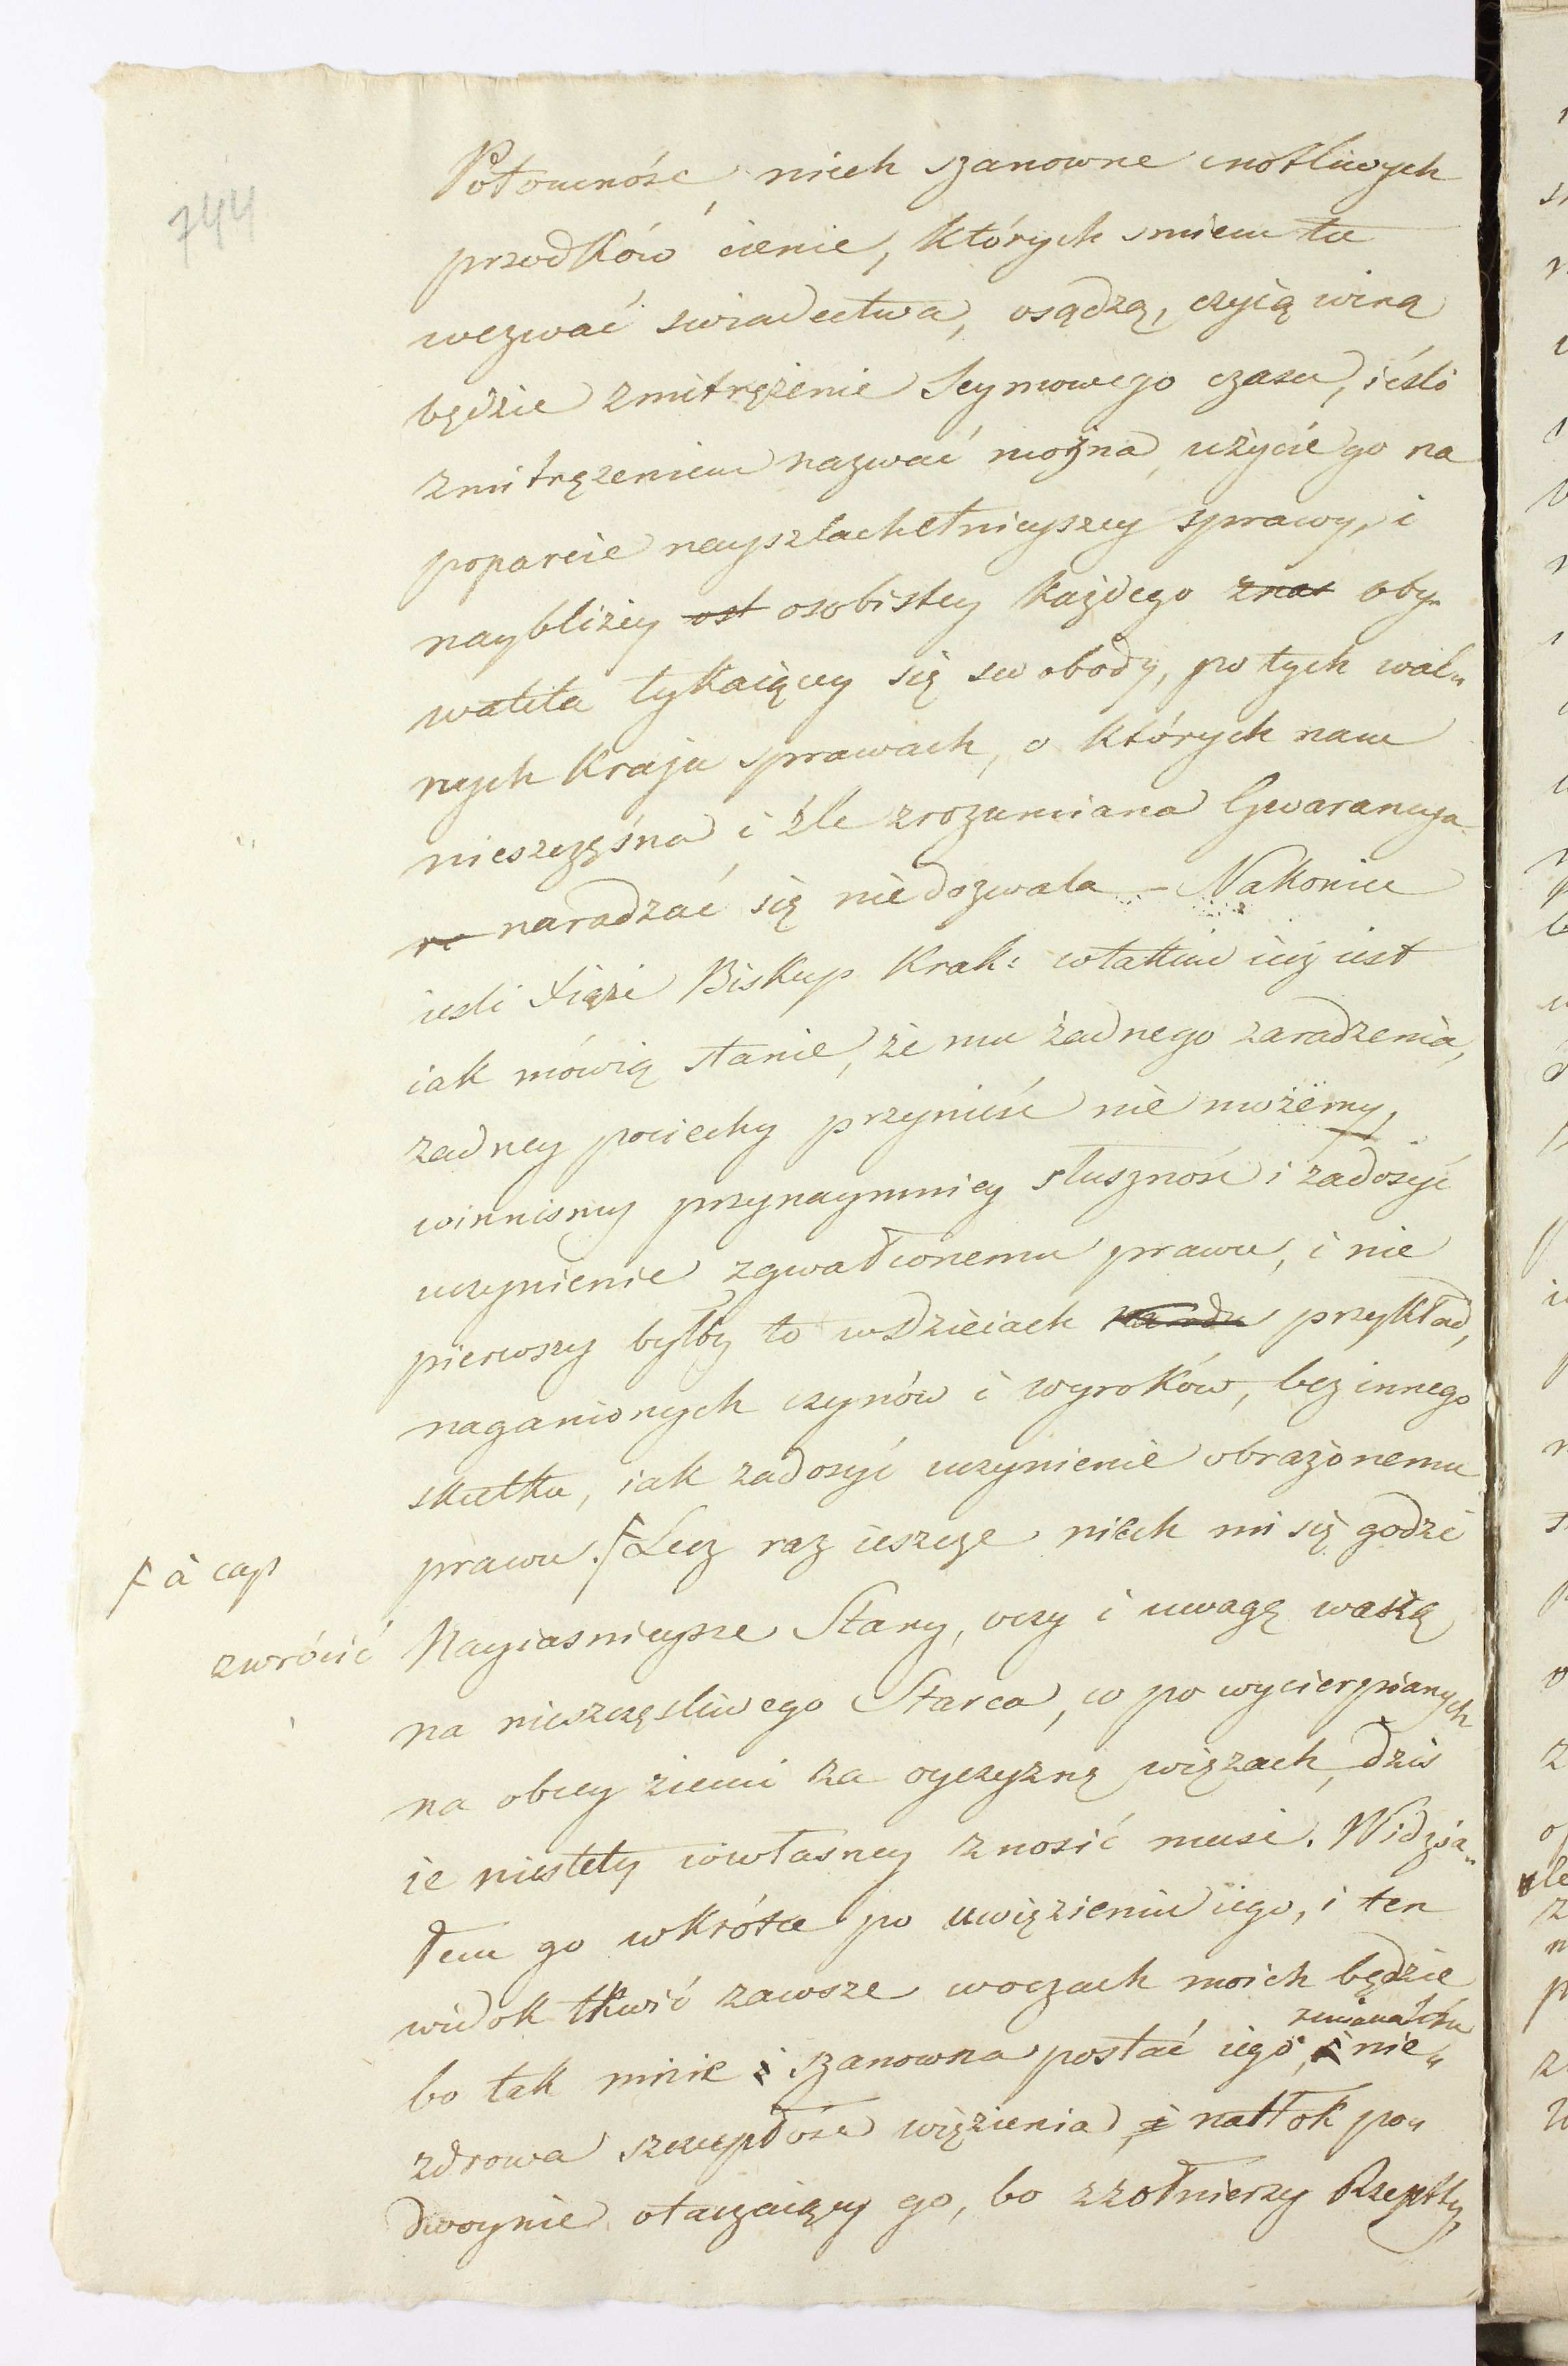 744
Potomność, niech szanowne cnotliwych
przodków cienie, których smiem tu
wezwać swiadectwa, osądzą, czyią winą
będzie zmitrężenie Seymowego czasu, iesli
zmitrężeniem nazwać można, użycie go na
poparcie nayszlachetnieyszey sprawy, i
naybliżey ost osobistey każdego znas oby„
watela tykaiącey się swobody, po tych wal„
nych kraju sprawach, o których nam
nieszczęśna i źle zrozumiana Gwarancya
ro naradzać się niedozwala – Nakoniec
iesli Xiąże Biskup Krak: wtakim iuż iest
iak mówią stanie, że mu żadnego zaradzenia,
żadney pociechy przynieść nie możemy,
winnismy przynaymniey słuszność i zadosyć
uczynienie zgwałconemu prawu, i nie
pierwszy byłby to wdzieiach przykład,
naganionych czynów i wyroków, bez innego
skutku, iak zadosyć uczynienie obrażonemu
prawu. Lecz raz ieszcze niech mi się godzi
à cap
zwrócić Nayiasnieysze Stany, oczy i uwagę waszą
na nieszczęsliwego Starca, co po wycierpianych
na obcey ziemi za oyczyznę więzach, dzis
ie niestety wwłasney znosić musi. Widzia„
łem go wkrótce po uwięzieniu iego, i ten
widok tkwić zawsze woczach moich będzie
bo tak mnie i szanowna postać iego, i nie„
zdrowa szczupłość więzienia, i natłok po„
dwoynie otaczaiącey go, bo zżołnierzy Rzepltey,